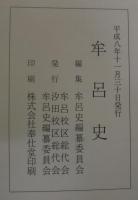 平成八年十一月三十日発行
牟呂史
編集 牟呂史編纂委員会
発行 牟呂校区総代会
汐田校区総代会
牟呂史編纂委員会
印刷 株式会社奉仕堂印刷